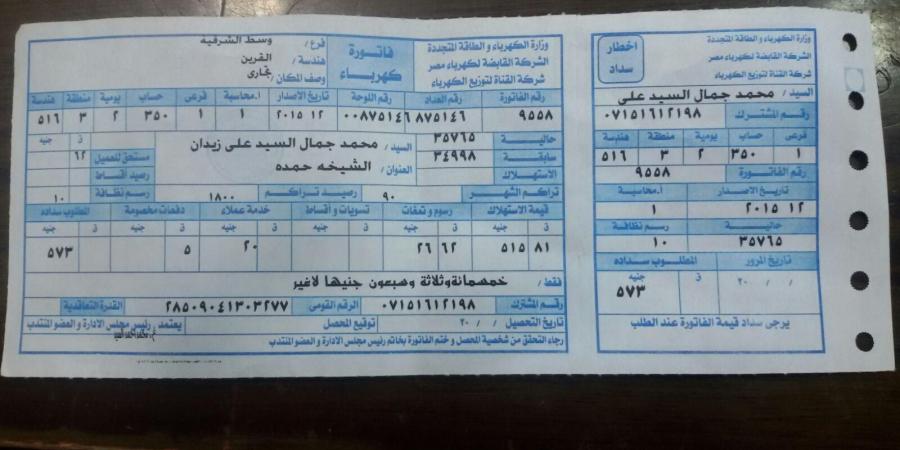 وزارة الكهرباء و الطاقة المتجددة
الشركة القابضة لكهرباء مصر
شركة القناة لتوزيع الكهرباء
اخطار سداد
السيد / محمد جمال السيد على
رقم المشترك ٠٧١٥١٦١٢١٩٨
فرعى حساب يومية منطقة هندسة
١ ٣٥٠ ٢ ٣ ٥١٦
رقم الفاتورة
٩٥٥٨
تاريخ الاصدار أ.محاسبة
١٢ ٢٠١٥ ١
حالية رسم نظافة
٣٥٧٦٥ ١٠
تاريخ المرور المطلوب سداده
/ / ٢٠ ق جنيه
٥٧٣
يرجى سداد قيمة الفاتورة عند الطلب
وزارة الكهرباء و الطاقة المتجددة
الشركة القابضة لكهرباء مصر
شركة القناة لتوزيع الكهرباء
فاتورة كهرباء
فرع / وسط الشرقيه
هندسة / القرين
وصف المكان / تجارى
رقم الفاتورة رقم العداد رقم اللوحة تاريخ الاصدار أ.محاسبة فرعى حساب يومية منطقة هندسة
٩٥٥٨ ٨٧٥١٤٦ ٠٠٨٧٥١٤٦ ١٢ ٢٠١٥ ١ ١ ٣٥٠ ٢ ٣ ٥١٦
حالية ٣٥٧٦٥
سابقة ٣٤٩٩٨
الاستهلاك
السيد / محمد جمال السيد على زيدان
العنوان / الشيخه حمده
ق جنيه
مستحق للعميل ٦٢
رصيد أقساط
تراكم الشهر ٩٠ رصيد تراكم ١٨٠٠ رسم نظافة ١٠
قيمة الاستهلاك رسوم و تمغات تسويات و أقساط خدمة عملاء دفعات مخصومة المطلوب سداده
ق جنيه ق جنيه ق جنيه ق جنيه ق جنيه ق جنيه
٨١ ٥١٥ ٦٢ ٢٦ ٢٠ ٥ ٥٧٣
فقط / خمسمائة وثلاثة وسبعون جنيها لاغير
رقم المشترك ٠٧١٥١٦١٢١٩٨ الرقم القومى ٢٨٥٠٩٠٤١٣٠٣٢٧٧ القدرة التعاقدية
تاريخ التحصيل / / ٢٠ توقيع المحصل يعتمد رئيس مجلس الادارة و العضو المنتدب
رجاء التحقق من شخصية المحصل و ختم الفاتورة بخاتم رئيس مجلس الادارة و العضو المنتدب